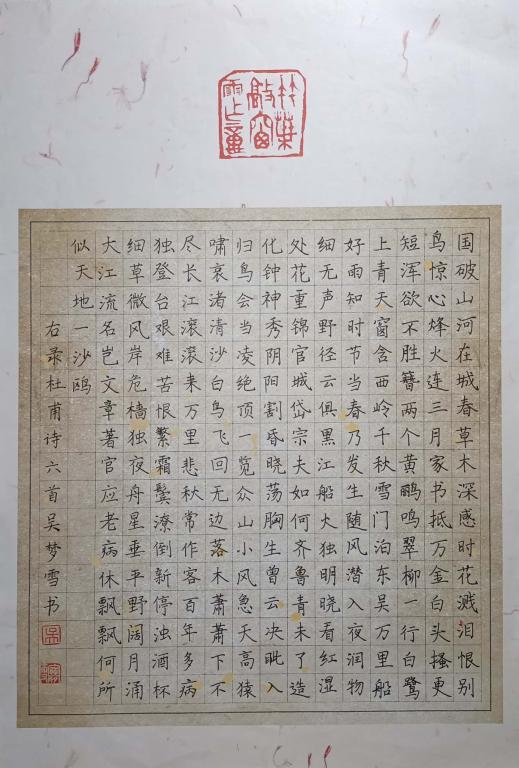 竹葉
敲窗
国破山河在城春草木深感时花溅泪恨别
鸟惊心烽火连三月家书抵万金白头搔更
短浑欲不胜簪两个黄鹂鸣翠柳一行白鹭
上青天窗含西岭千秋雪门泊东吴万里船
好雨知时节当春乃发生随风潜入夜润物
细无声野径云俱黑江船火独明晓看红湿
处花重锦官城岱宗夫如何齐鲁青未了造
化钟神秀阴阳割昏晓荡胸生曾云决眦入
归鸟会当凌绝顶一览众山小风急天高猿
啸哀渚清沙白鸟飞回无边落木萧萧下不
尽长江滚滚来万里悲秋常作客百年多病
独登台艰难苦恨繁霜鬓潦倒新停浊酒杯
细草微风岸危樯独夜舟星垂平野阔月涌
大江流名岂文章著官应老病休飘飘何所
似天地一沙鸥
右录杜甫诗六首吴梦雪书